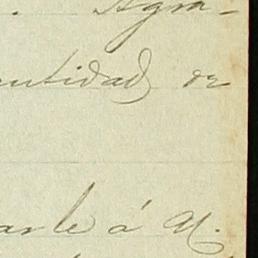 . Agra-
antidad, de
arle á U.